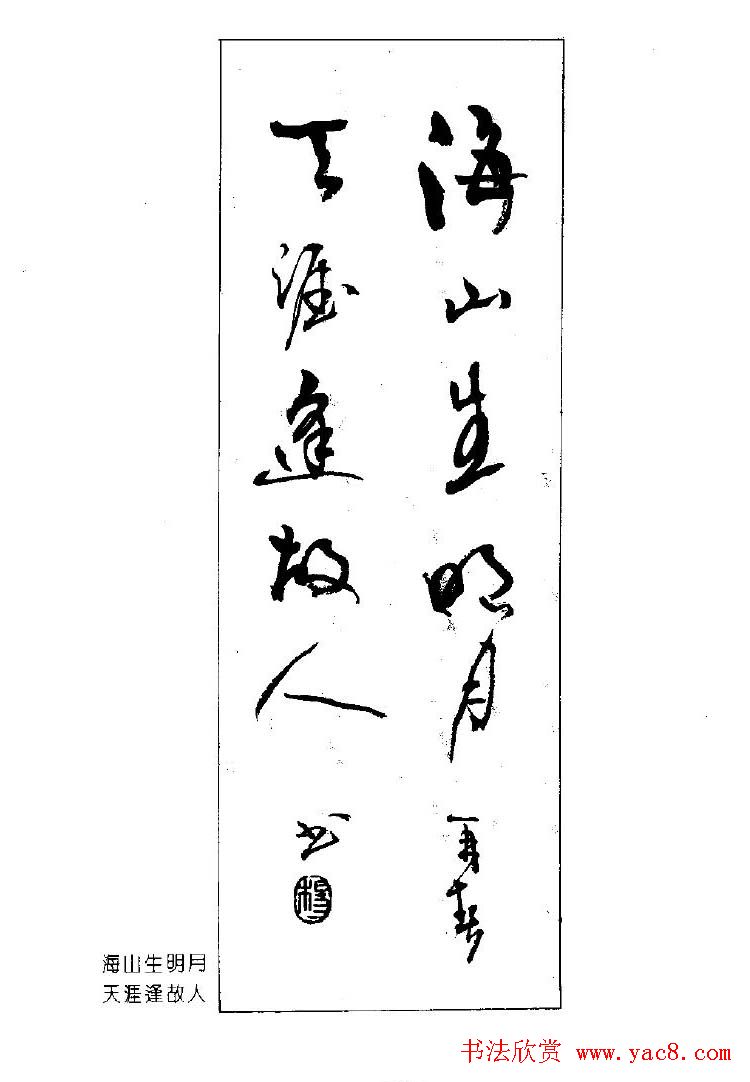 海山生明月
天涯逢故人
书
穆
海山生明月
天涯逢故人
书法欣赏 www.yac8.com